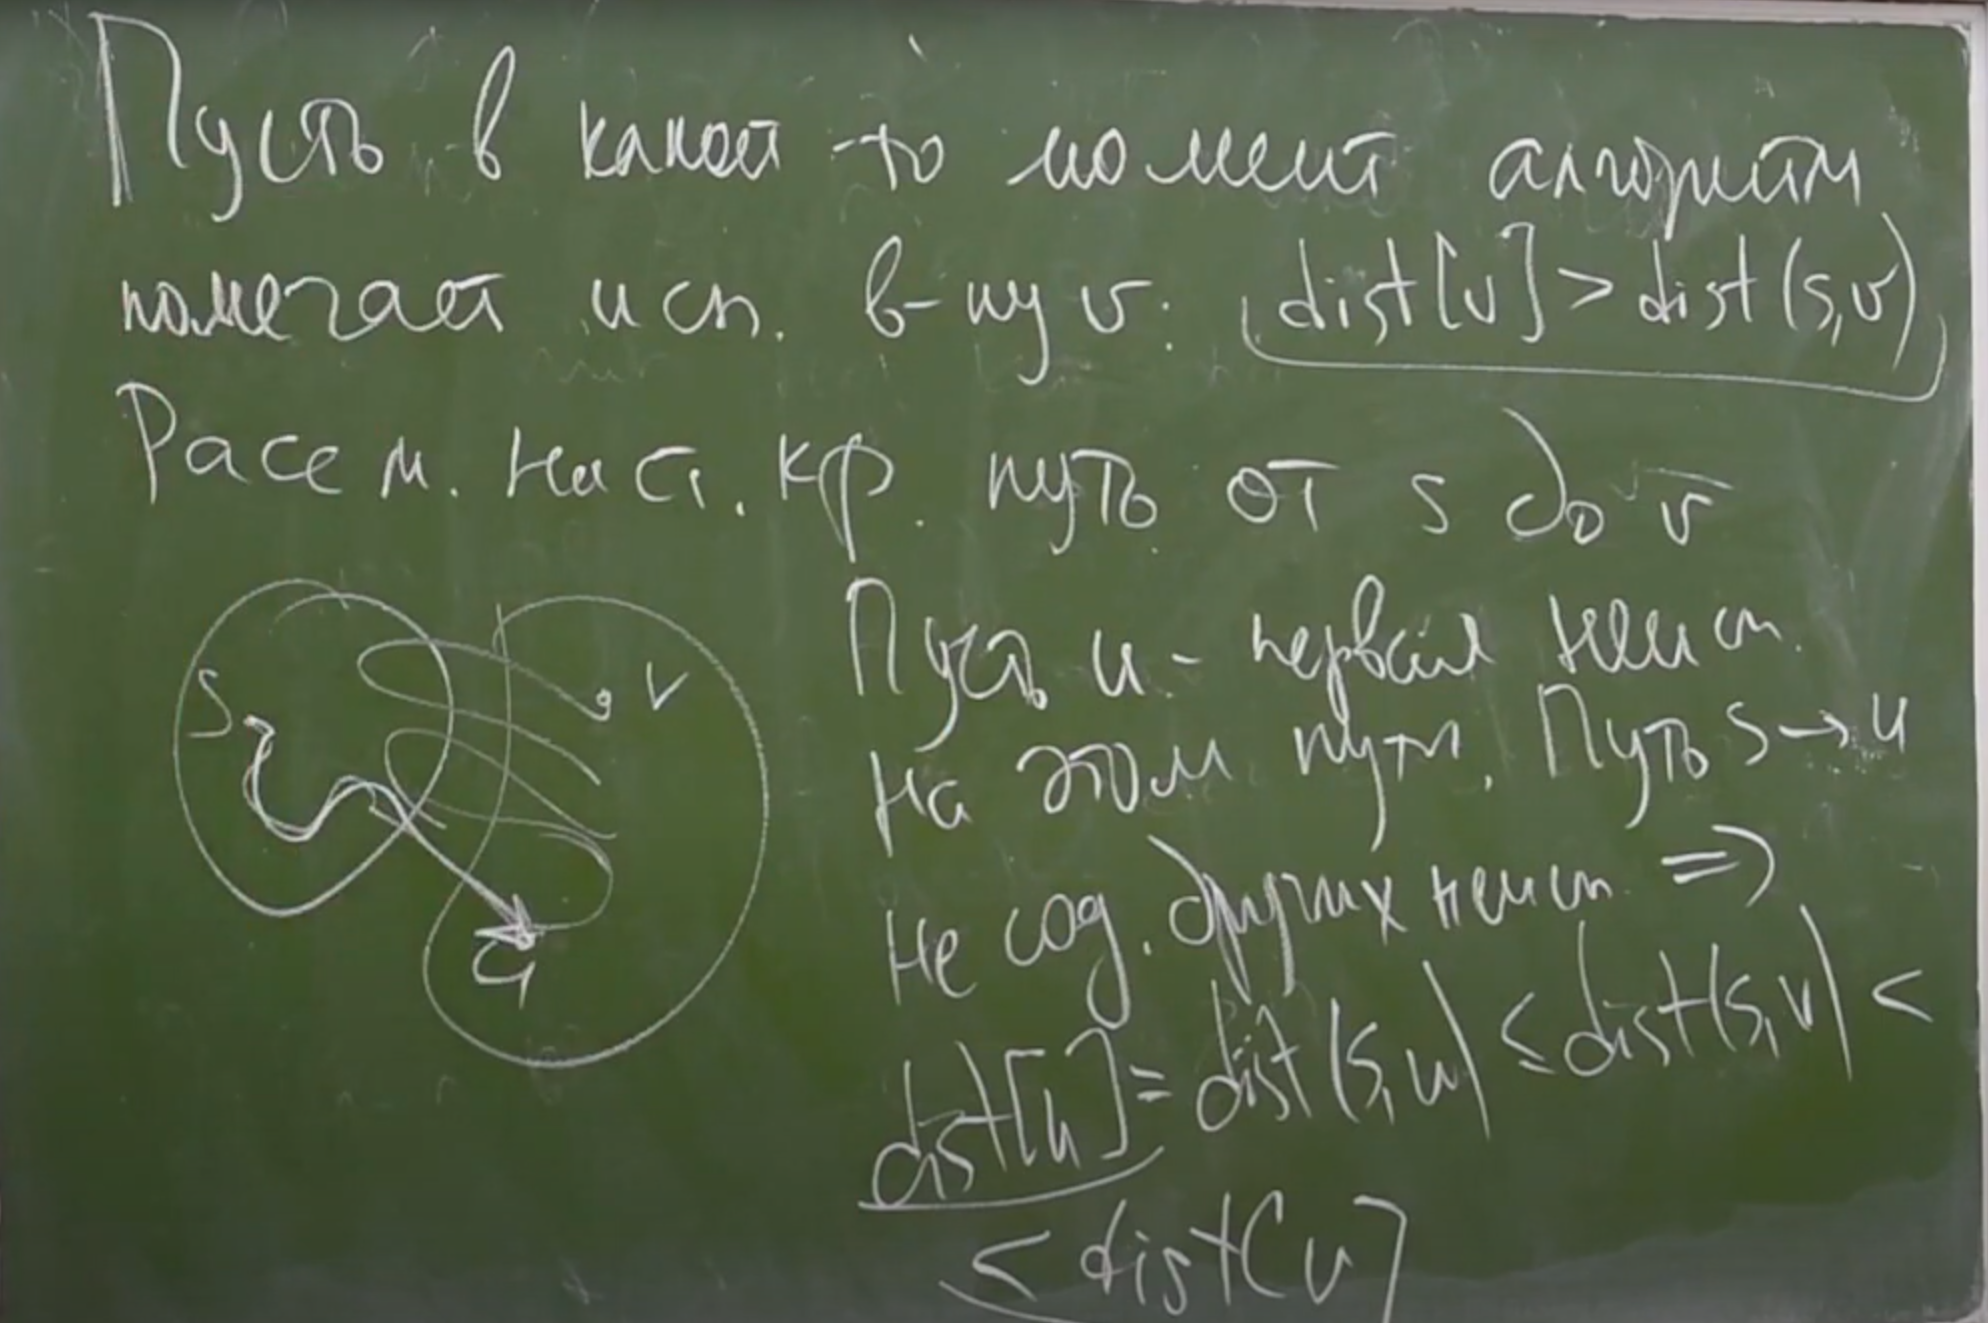 Пусть в какой-то момент алгоритм
помечает исп. в-ну v: dist[v] > dist(s,v)
Рассм. наст. кр. путь от s до v
Пусть u - первая неисп.
на этом пути. Путь s → u
не сод. других неисп. =>
dist[u] = dist(s,u) ≤ dist(s,v) <
< dist[v]
S
v
u